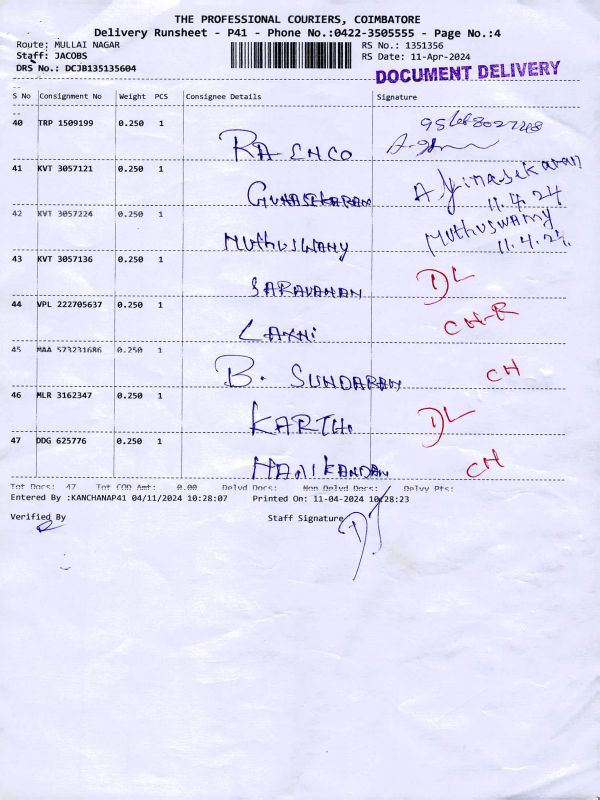 THE PROFESSIONAL COURIERS, COIMBATORE
Delivery Runsheet - P41 - Phone No.:0422-3505555 - Page No.:4
Route: MULLAI NAGAR
RS No.: 1351356
Staff: JACOBS
RS Date: 11-Apr-2024
DRS No.: DCJB135135604
DOCUMENT DELIVERY
S No Consignment No Weight PCS Consignee Details Signature
40 TRP 1509199 0.250 1
RA ENCO
41 KVT 3057121 0.250 1
GUNASEKARAN
11.4.24
42 KVT 3057224 0.250 1
MUTHUSWAMY Muthuswamy
11.4.24.
43 KVT 3057136 0.250 1
SARAVANAN DL
44 VPL 222705637 0.250 1
LAXMI CH-R
45 MAA 573231686 0.250 1
B. SUNDARAM CH
46 MLR 3162347 0.250 1
KARTHI DL
47 DDG 625776 0.250 1
MANIKANDAN CH
Tot Docs: 47 Tot COD Amt: 0.00 Delvd Docs: Non Delvd Docs: Delvy Pts:
Entered By :KANCHANAP41 04/11/2024 10:28:07 Printed On: 11-04-2024 10:28:23
Verified By Staff Signature